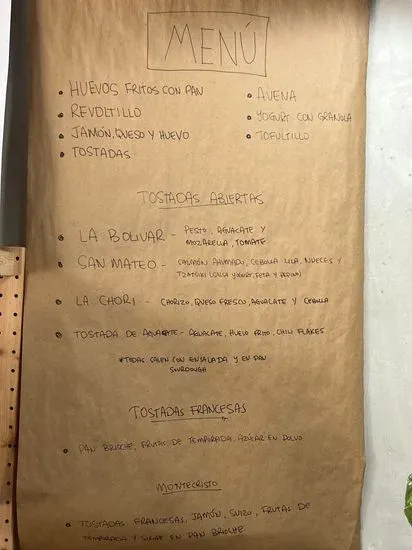 MENÚ
• HUEVOS FRITOS CON PAN
• REVOLTILLO
• JAMÓN, QUESO Y HUEVO
• TOSTADAS
• AVENA
• YOGURT CON GRANOLA
• TOFUTILLO
TOSTADAS ABIERTAS
• LA BOLIVAR - PESTO, AGUACATE Y
MOZARELLA, TOMATE
• SAN MATEO - SALMÓN AHUMADO, CEBOLLA LILA, NUECES Y
TZATZIKI (SALSA YOGURT, FETA Y PEPINO)
• LA CHORI - CHORIZO, QUESO FRESCO, AGUACATE Y CEBOLLA
• TOSTADA DE AGUACATE - AGUACATE, HUEVO FRITO, CHILI FLAKES
*TODAS SALEN CON ENSALADA Y EN PAN
SOURDOUGH
TOSTADAS FRANCESAS
• PAN BRIOCHE, FRUTAS DE TEMPORADA, AZUCAR EN POLVO
MONTECRISTO
• TOSTADAS FRANCESAS, JAMÓN, SUIZO, FRUTAS DE
TEMPORADA Y SIROPE EN PAN BRIOCHE